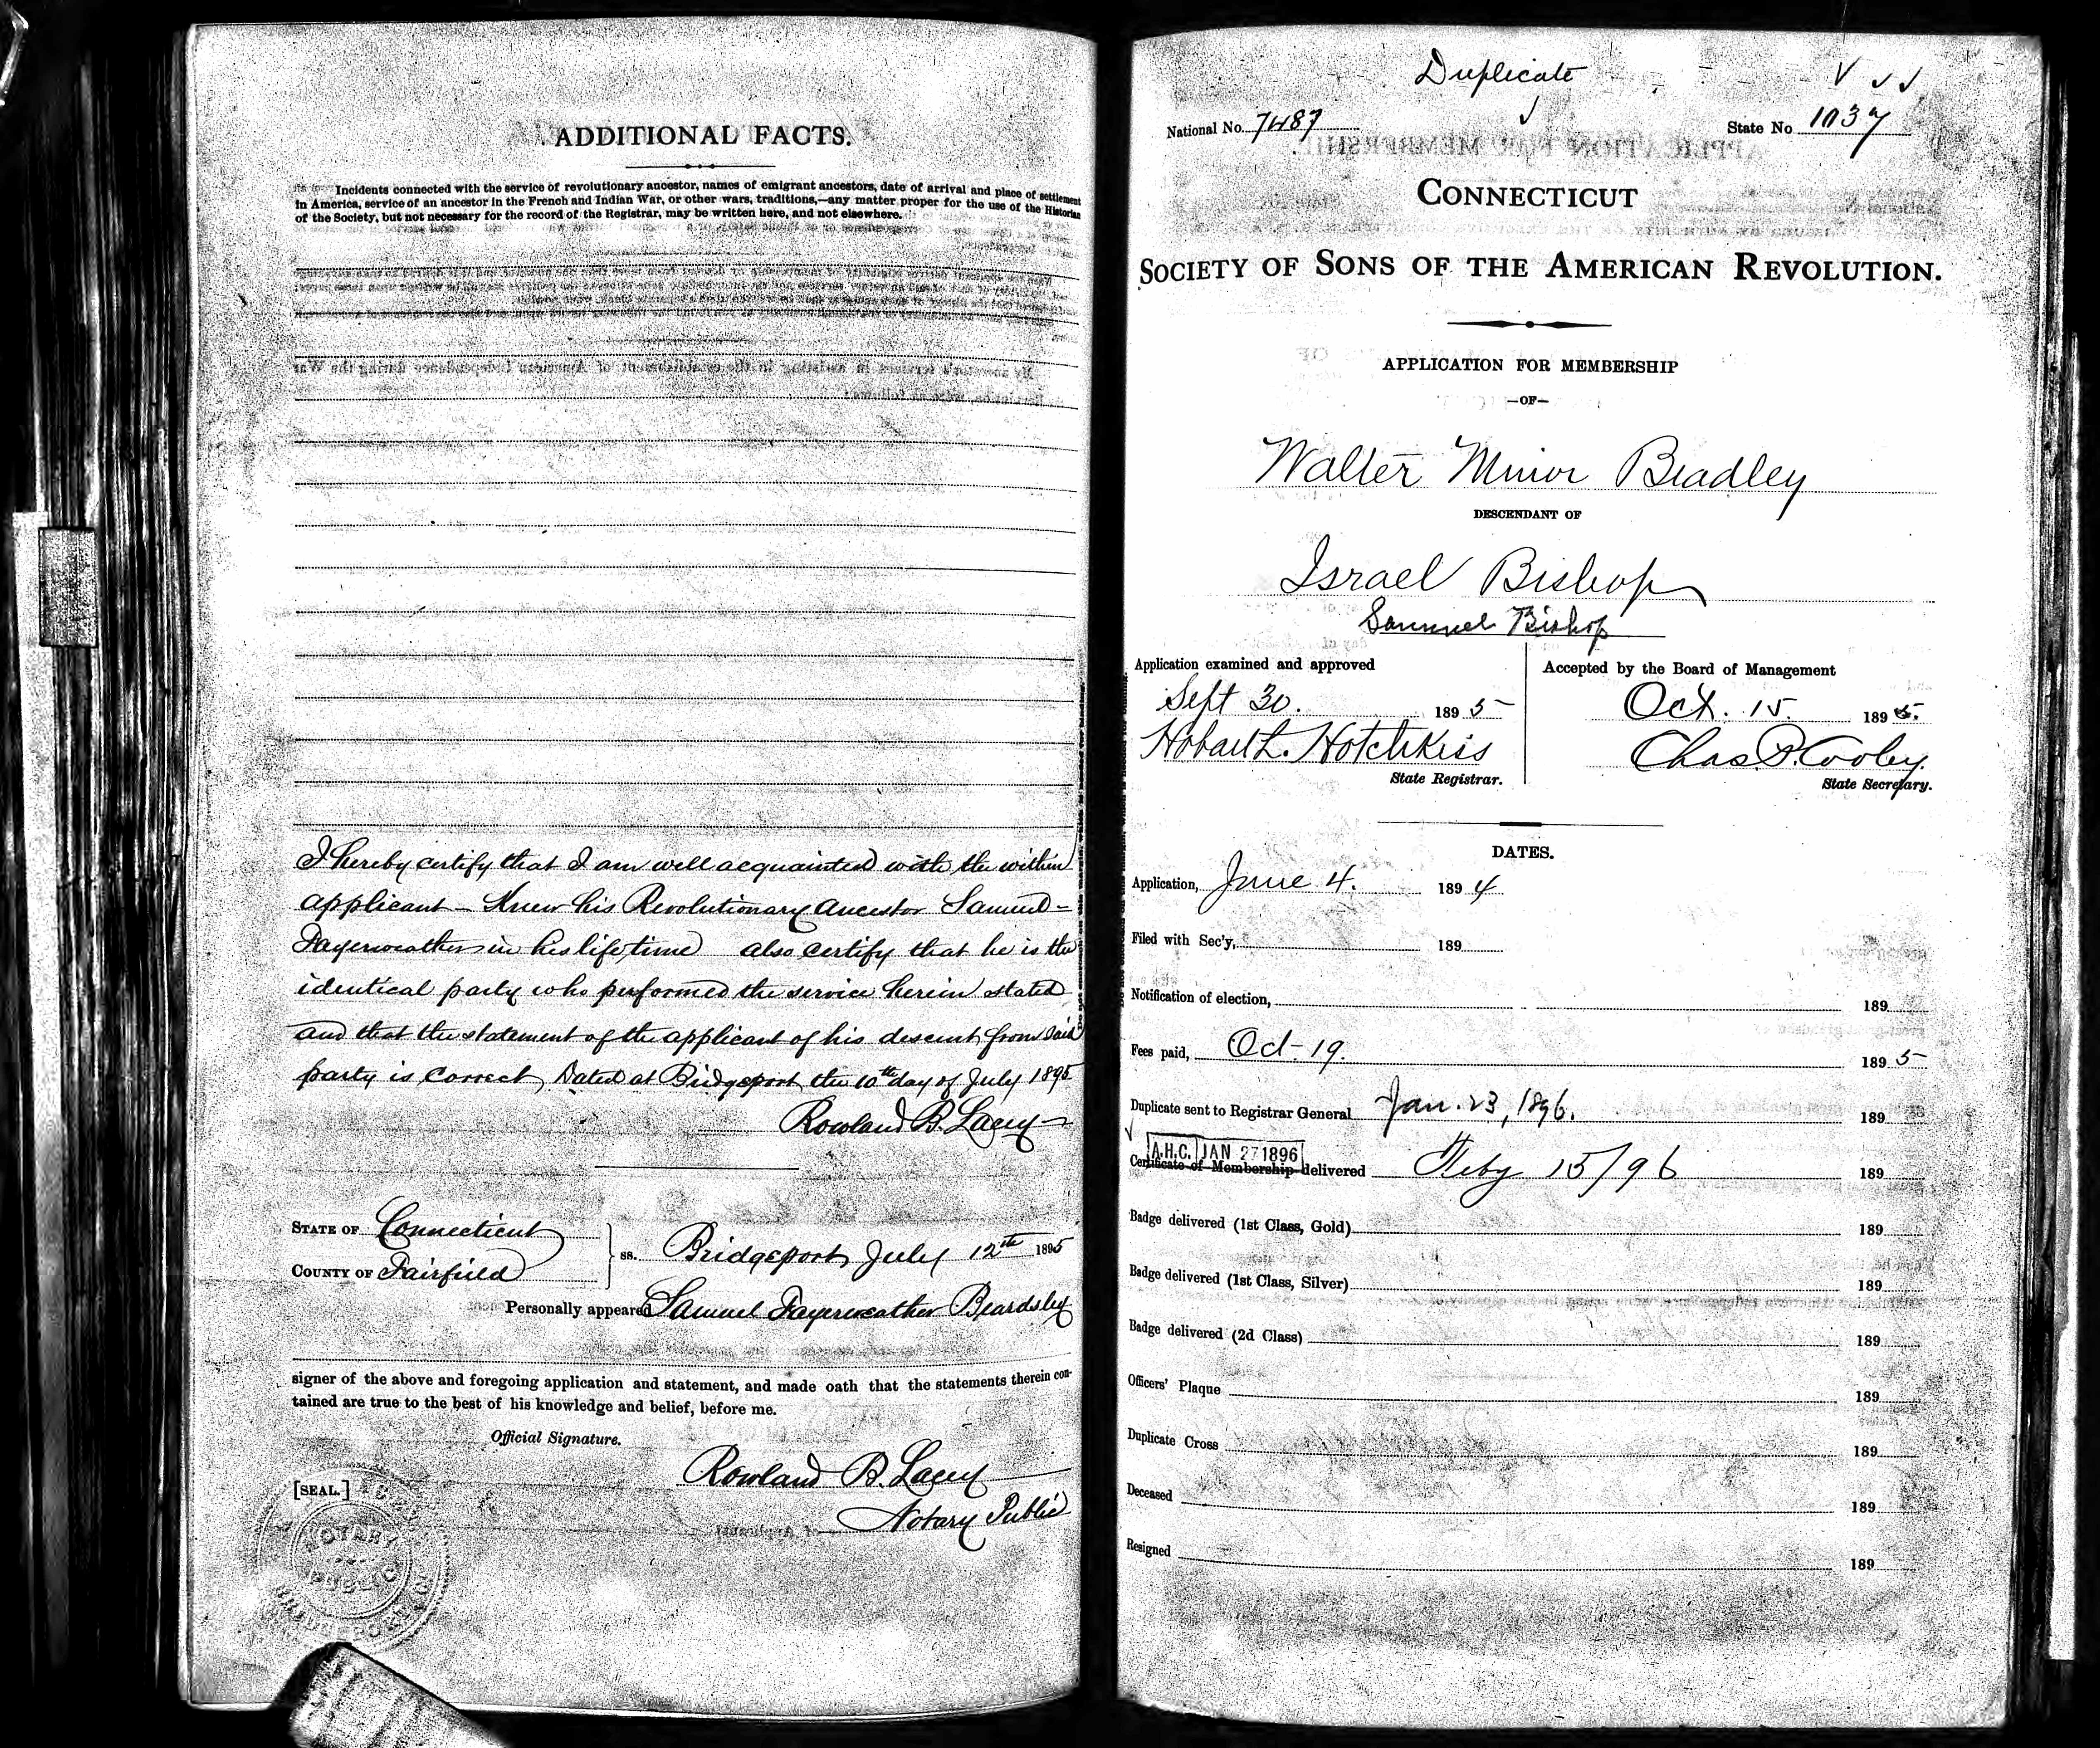 ADDITIONAL FACTS.
Incidents connected with the service of revolutionary ancestor, names of emigrant ancestors, date of arrival and place of settlement
in America, service of an ancestor in the French and Indian War, or other wars, traditions,—any matter proper for the use of the Historian
of the Society, but not necessary for the record of the Registrar, may be written here, and not elsewhere.
I hereby certify that I am well acquainted with the within
applicant – Knew his Revolutionary Ancestor Samuel
Fayerweather in his lifetime also certify that he is the
identical party who performed the service herein stated
and that the statement of the applicant of his descent from said
party is correct, Dated at Bridgeport the 10th day of July 1895
Rowland B. Lacey
STATE OF Connecticut
COUNTY OF Fairfield
ss. Bridgeport July 12th 1895
Personally appeared Samuel Fayerweather Beardsley
signer of the above and foregoing application and statement, and made oath that the statements therein con-
tained are true to the best of his knowledge and belief, before me.
Official Signature.
Rowland B. Lacey
[SEAL.]
Notary Public
NOTARY
PUBLIC
Duplicate
National No. 7487
State No 1037
CONNECTICUT
SOCIETY OF SONS OF THE AMERICAN REVOLUTION.
APPLICATION FOR MEMBERSHIP
—OF—
Walter Minor Bradley
DESCENDANT OF
Israel Bishop
Samuel Bishop
Application examined and approved
Sept 30. 1895
Hobart L. Hotchkiss
State Registrar.
Accepted by the Board of Management
Oct. 15. 1895.
Chas. P. Cooley.
State Secretary.
DATES.
Application, June 4. 1894
Filed with Sec'y, 189
Notification of election, 189
Fees paid, Oct-19. 1895
Duplicate sent to Registrar General Jan. 23, 1896. 189
A.H.C. JAN 27 1896
Certificate of Membership delivered Feby 15/96 189
Badge delivered (1st Class, Gold) 189
Badge delivered (1st Class, Silver) 189
Badge delivered (2d Class) 189
Officers' Plaque 189
Duplicate Cross 189
Deceased 189
Resigned 189